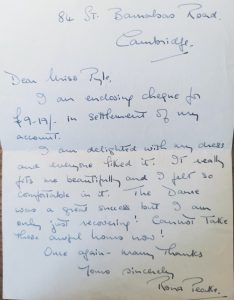 84 St. Barnabas Road.
Cambridge.
Dear Miss Pyle,
I am enclosing cheque for
£9-19/- in settlement of my
account.
I am delighted with my dress
and everyone liked it. It really
fits me beautifully and I felt so
comfortable in it. The Dance
was a great success but I am
only just recovering! Cannot take
these awful hours now!
Once again - many thanks
Yours sincerely
Rona Peake.